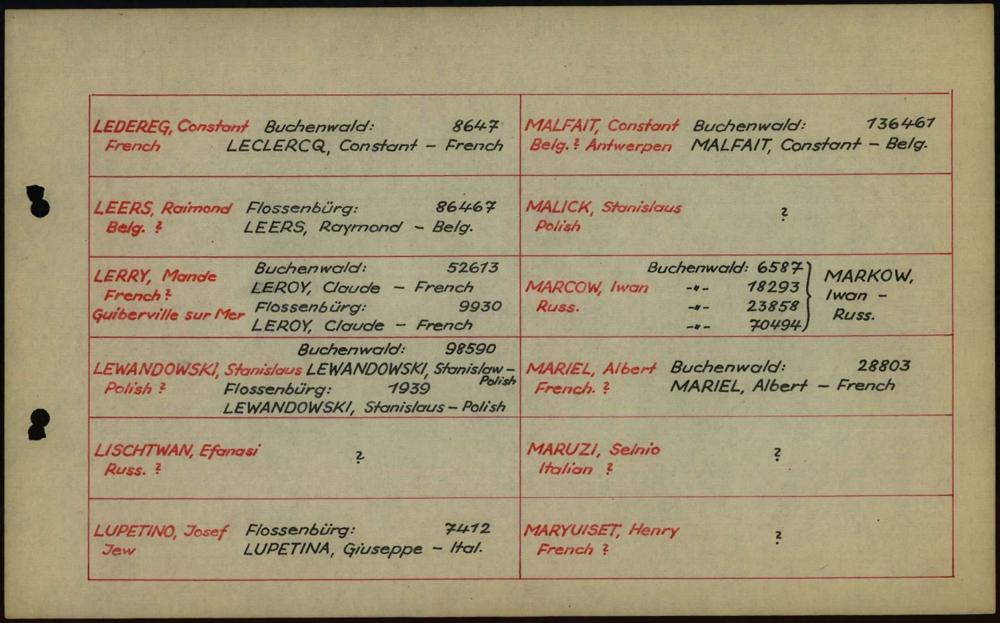 LEDEREG, Constant Buchenwald: 8647
French LECLERCQ, Constant – French
LEERS, Raimond Flossenbürg: 86467
Belg. ? LEERS, Raymond – Belg.
Buchenwald: 52613
LERRY, Mande LEROY, Claude – French
French ? Flossenbürg: 9930
Guiberville sur Mer LEROY, Claude – French
Buchenwald: 98590
LEWANDOWSKI, Stanislaus LEWANDOWSKI, Stanislaw – Polish
Polish ? Flossenbürg: 1939
LEWANDOWSKI, Stanislaus – Polish
LISCHTWAN, Efanasi ?
Russ. ?
LUPETINO, Josef Flossenbürg: 7412
Jew LUPETINA, Giuseppe – Ital.
MALFAIT, Constant Buchenwald: 136461
Belg. ? Antwerpen MALFAIT, Constant – Belg.
MALICK, Stanislaus ?
Polish
Buchenwald: 6587
MARCOW, Iwan -"- 18293 MARKOW,
Russ. -"- 23858 Iwan –
-"- 70494 Russ.
MARIEL, Albert Buchenwald: 28803
French. ? MARIEL, Albert – French
MARUZI, Selnio ?
Italian ?
MARYUISET, Henry ?
French ?